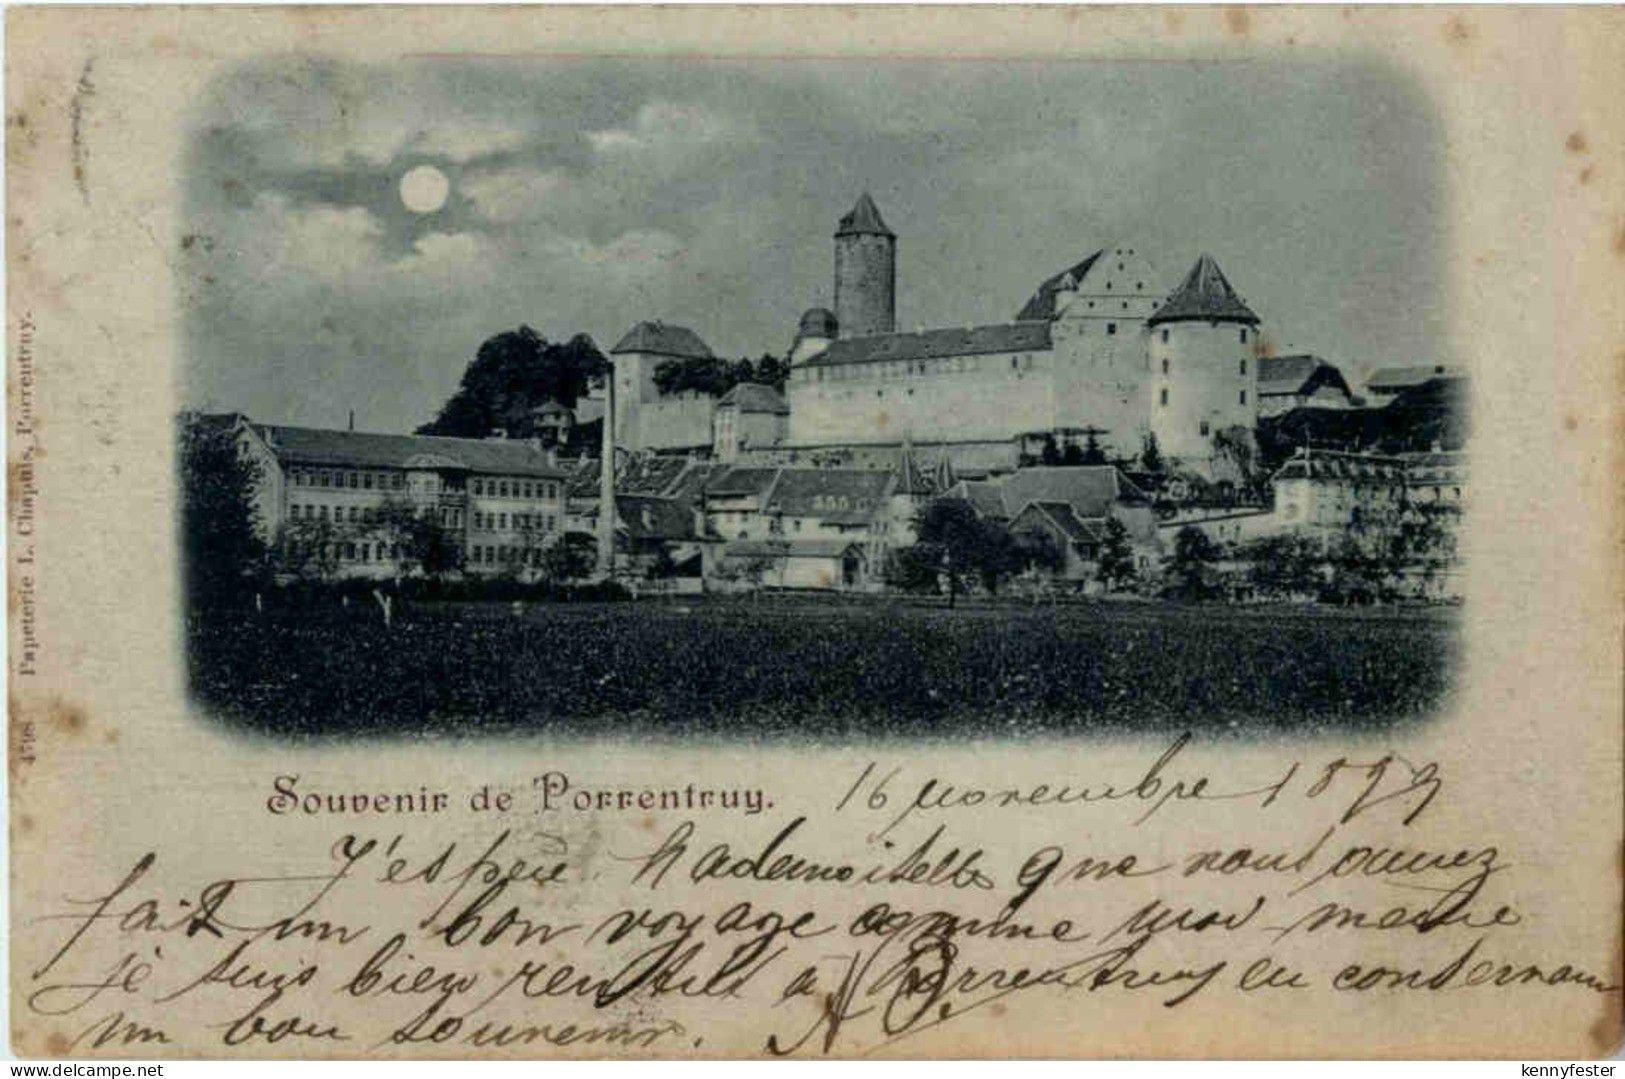 4798 Papeterie L. Chapuis, Porrentruy.
Souvenir de Porrentruy.
16 Novembre 1899
J'espère Mademoiselle que vous ouvrez
fait un bon voyage comme moi-même
je suis bien rentré à Porrentruy en conservant
un bon souvenir.
kennyfester